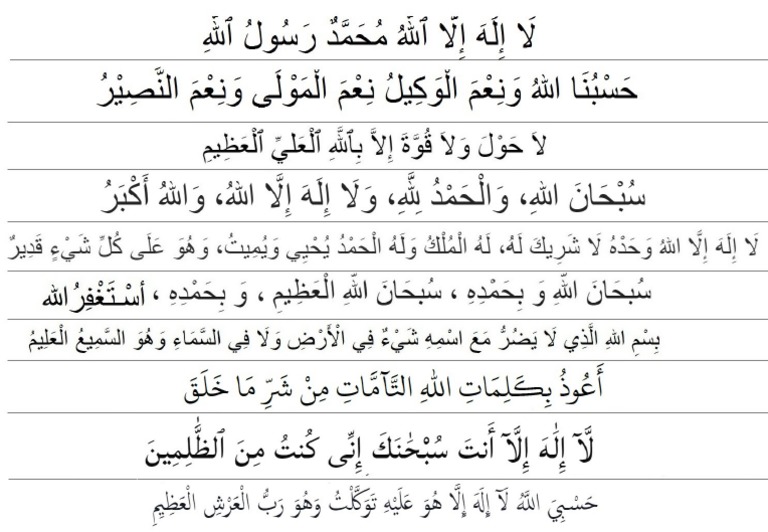 لَا إِلَهَ إِلَّا ٱللهُ مُحَمَّدٌ رَسُولُ ٱللهِ
حَسْبُنَا اللهُ وَنِعْمَ الْوَكِيلُ نِعْمَ الْمَوْلَى وَنِعْمَ النَّصِيْرُ
لاَ حَوْلَ وَلاَ قُوَّةَ إِلاَّ بِٱللَّهِ ٱلْعَلِيِّ ٱلْعَظِيمِ
سُبْحَانَ اللهِ، وَالْحَمْدُ لِلَّهِ، وَلَا إِلَهَ إِلَّا اللهُ، وَاللهُ أَكْبَرُ
لَا إِلَهَ إِلَّا اللهُ وَحْدَهُ لَا شَرِيكَ لَهُ، لَهُ الْمُلْكُ وَلَهُ الْحَمْدُ يُحْيِي وَيُمِيتُ، وَهُوَ عَلَى كُلِّ شَيْءٍ قَدِيرٌ
سُبحَانَ اللّهِ وَ بِحَمْدِهِ ، سُبحَانَ اللّهِ الْعَظِيمِ ، وَ بِحَمْدِهِ ، أسْتَغْفِرُ الله
بِسْمِ اللهِ الَّذِي لَا يَضُرُّ مَعَ اسْمِهِ شَيْءٌ فِي الْأَرْضِ وَلَا فِي السَّمَاءِ وَهُوَ السَّمِيعُ الْعَلِيمُ
أَعُوذُ بِكَلِمَاتِ اللهِ التَّآمَّاتِ مِنْ شَرِّ مَا خَلَقَ
لَّآ إِلَٰهَ إِلَّآ أَنتَ سُبْحَٰنَكَ إِنِّى كُنتُ مِنَ ٱلظَّٰلِمِينَ
حَسْبِيَ اللَّهُ لَآ إِلَهَ إِلَّا هُوَ عَلَيْهِ تَوَكَّلْتُ وَهُوَ رَبُّ الْعَرْشِ الْعَظِيمِ